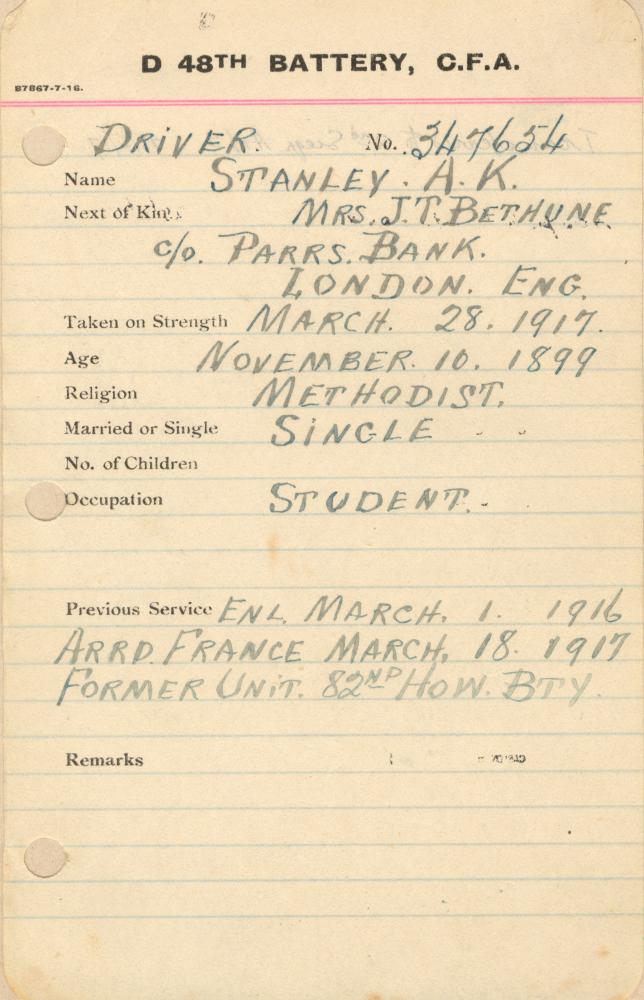 D 48TH BATTERY, C.F.A.
87867-7-16.
DRIVER. No. 347654
Name STANLEY. A.K.
Next of Kin MRS. J.T. BETHUNE
c/o. PARRS. BANK.
LONDON. ENG.
Taken on Strength MARCH. 28. 1917.
Age NOVEMBER. 10. 1899
Religion METHODIST.
Married or Single SINGLE
No. of Children
Occupation STUDENT.
Previous Service ENL. MARCH. 1. 1916
ARRD. FRANCE MARCH, 18. 1917
FORMER UNIT. 82ND HOW. BTY.
Remarks